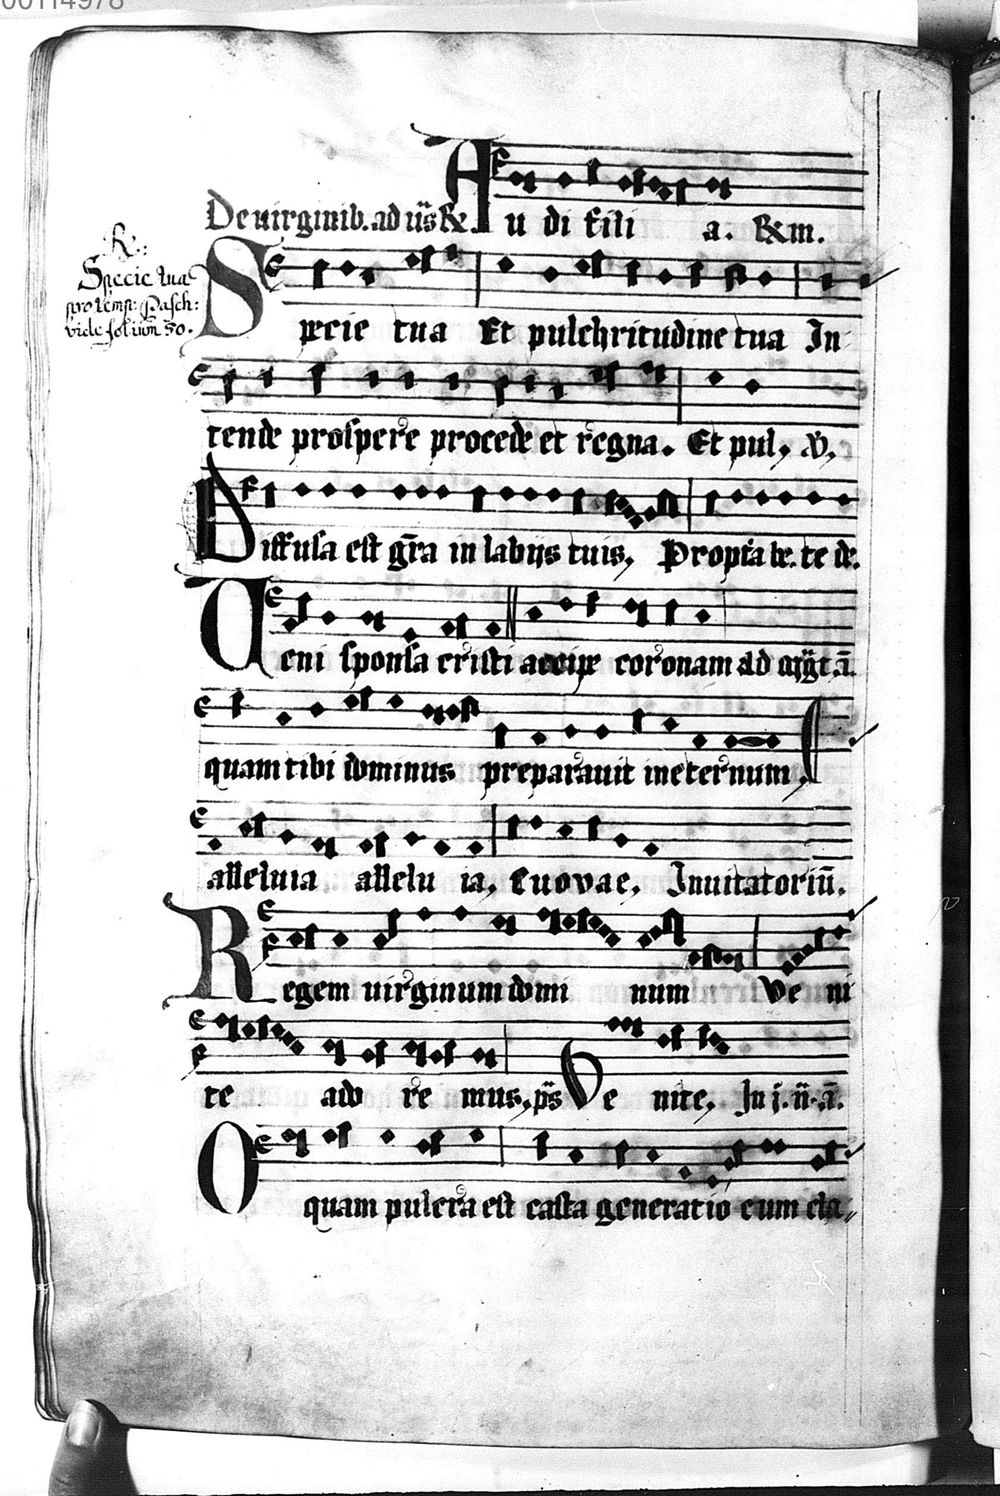 00114978
De uirginib. ad ūs℟. Au di fili a. ℟m.
℟:
Specie tua
pro temp: Pasch:
vide folium 30.
Specie tua Et pulchritudine tua In
tende prospere procede et regna. Et pul, ℣,
Diffusa est gr̄a in labijs tuis, Propt̄a be. te de.
Ueni sponsa cristi accipe coronam ad mg̅t ā.
quam tibi dominus preparauit in eternum,
alleluia allelu ia, Euovae, Inuitatoriū.
Regem uirginum domi num Ve ni
te ado re mus, p̄s Ve nite, In j. n̄. ā.
O quam pulcra est casta generatio cum cla